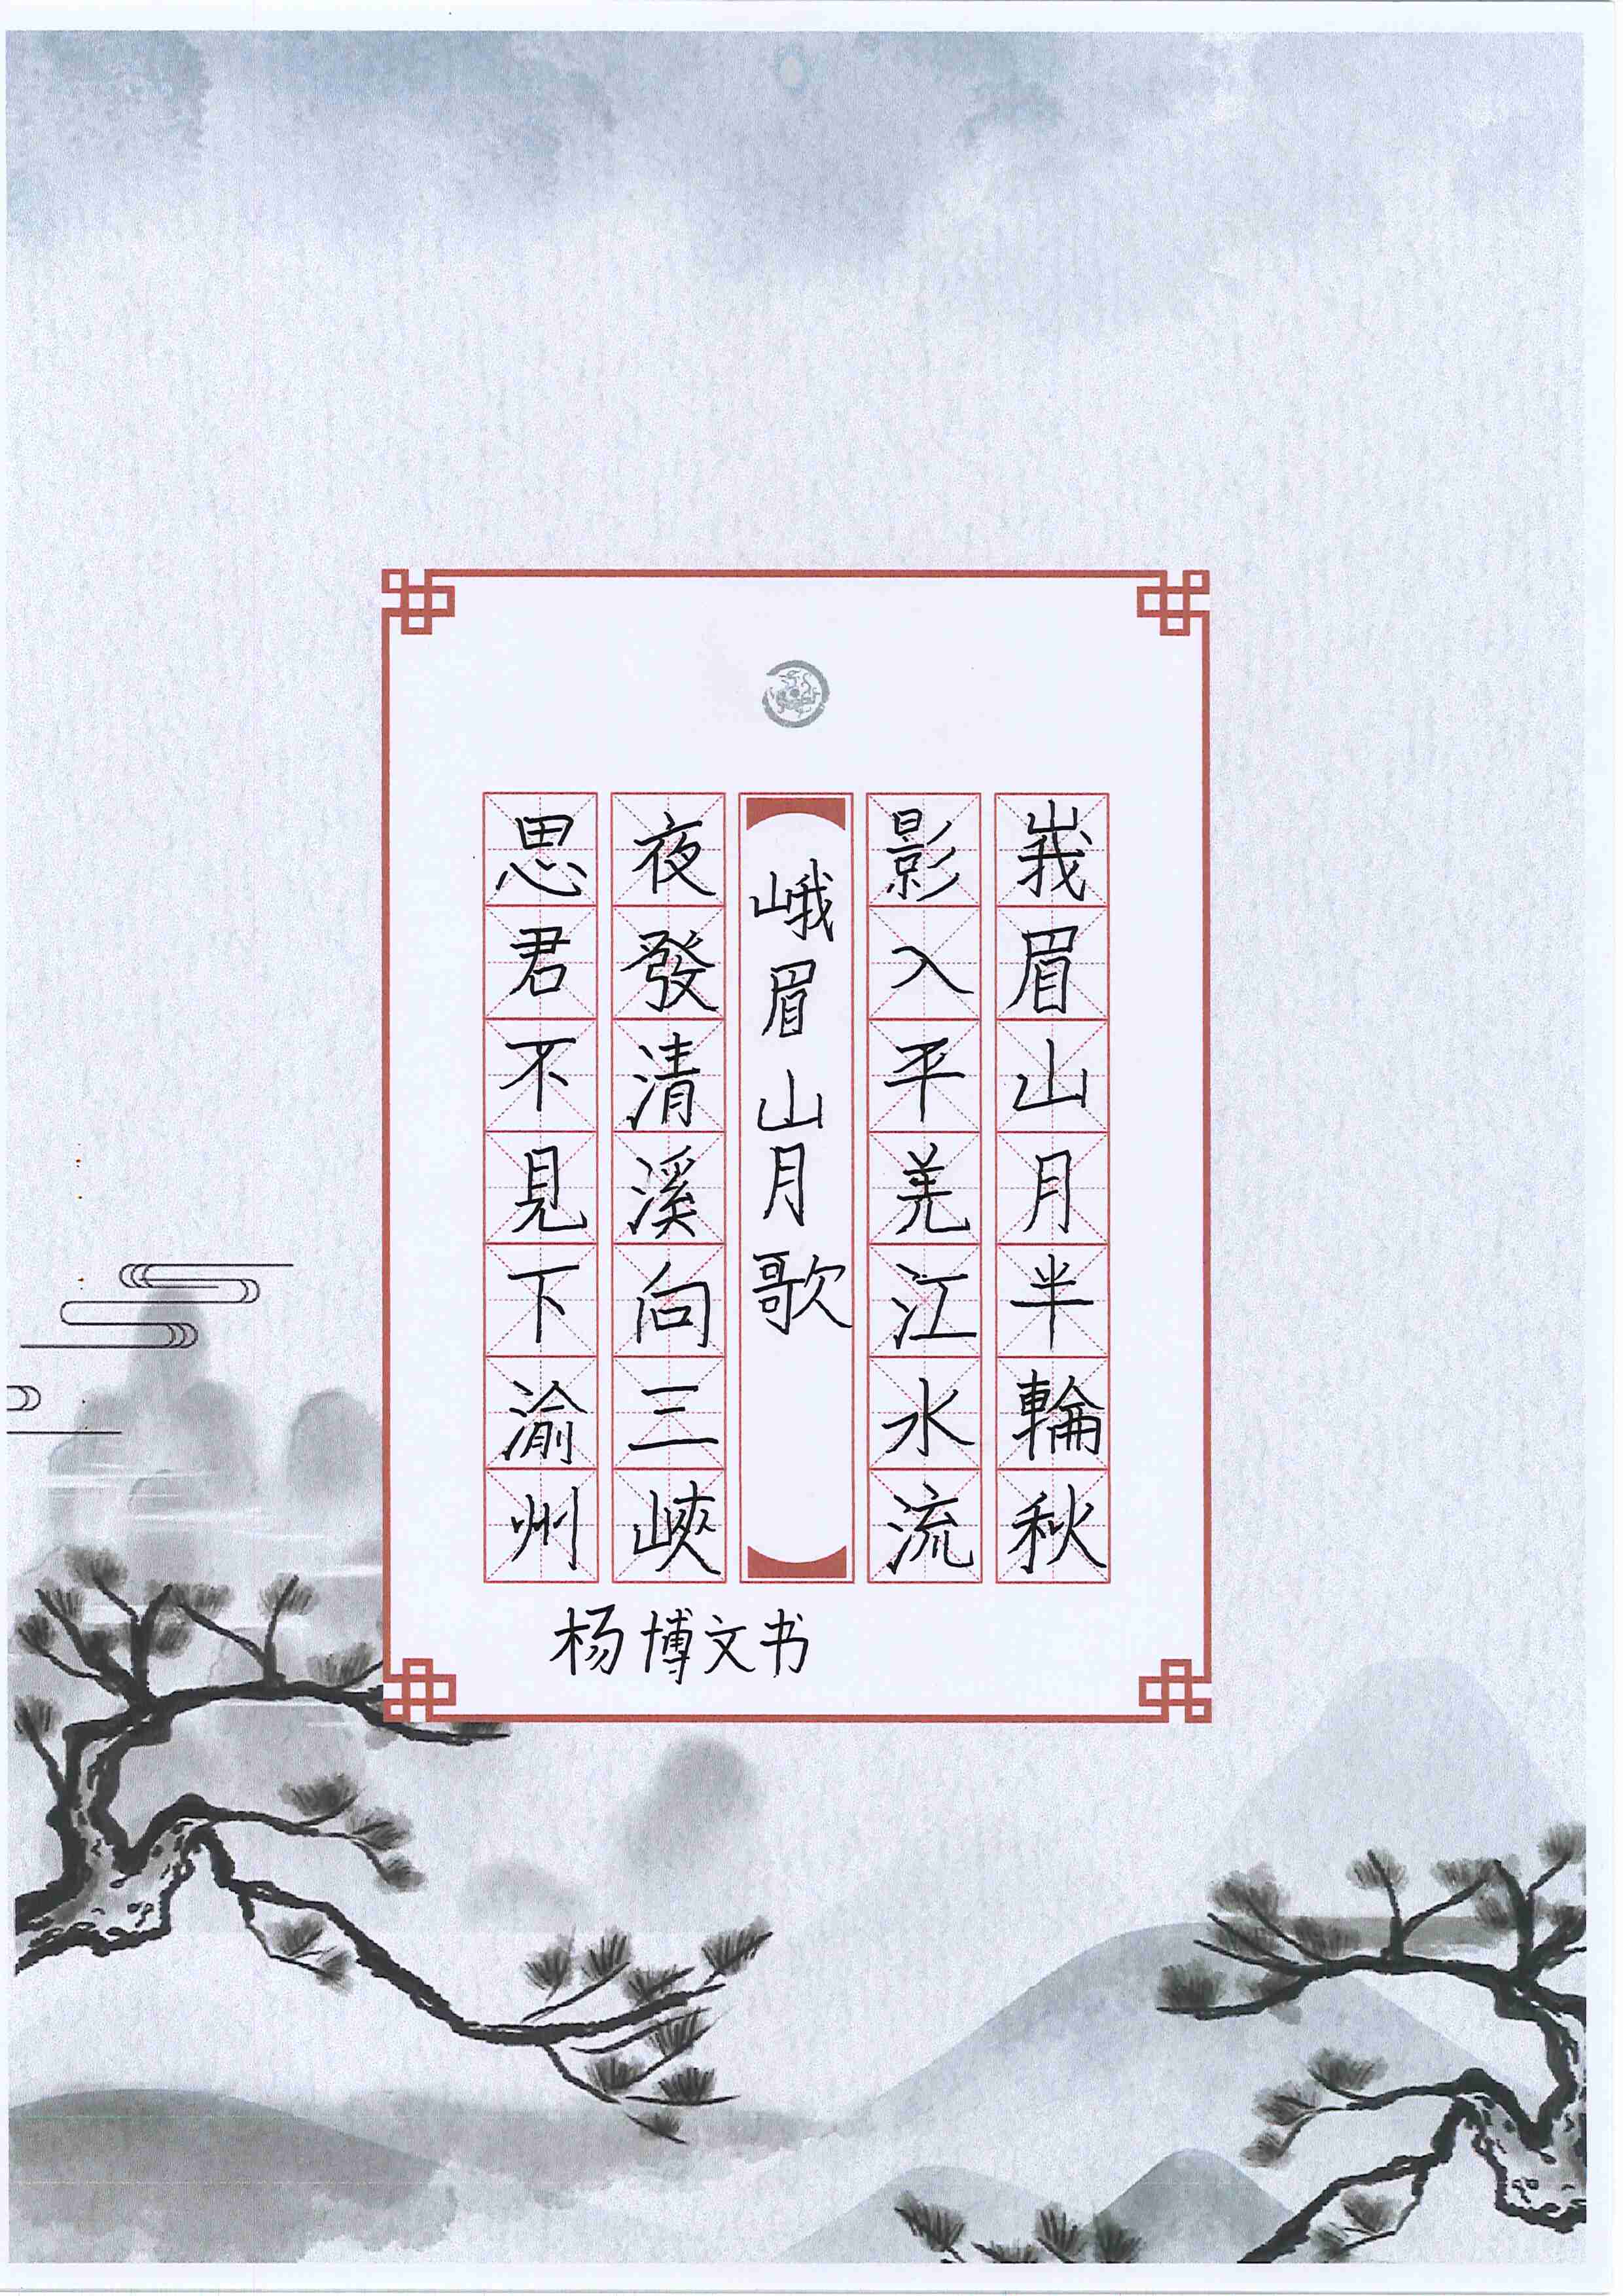 峩眉山月半輪秋
影入平羌江水流
峨眉山月歌
夜發清溪向三峽
思君不見下渝州
杨博文书